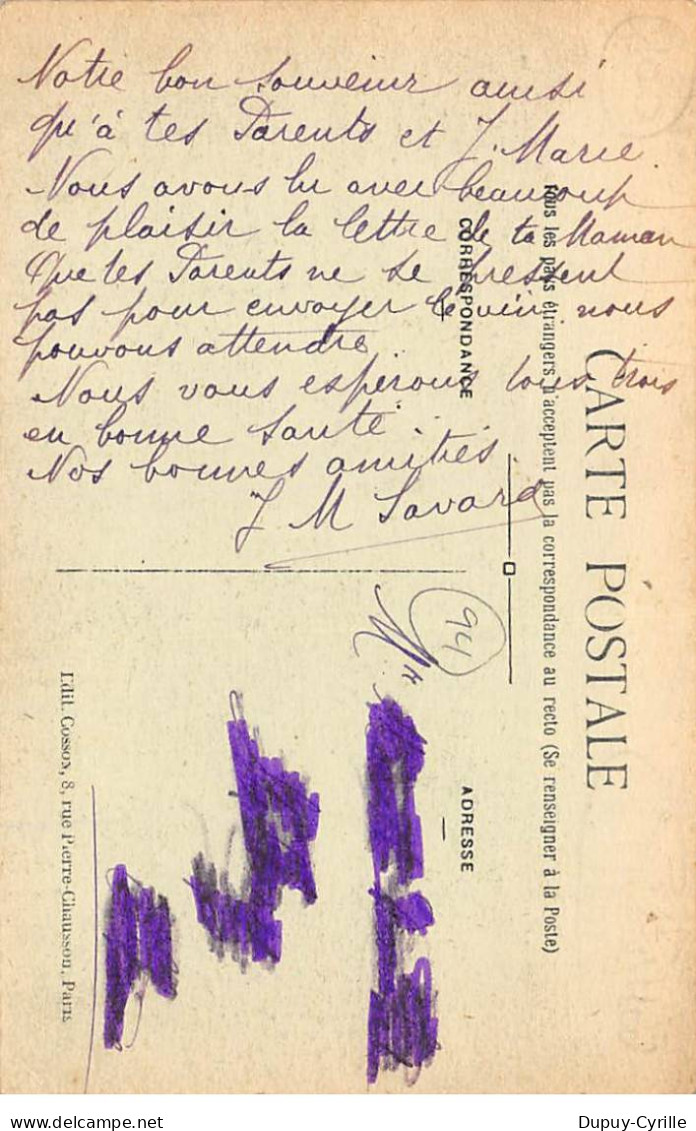 Notre bon souvenir ainsi
qu'à tes Parents et J. Marie.
Nous avons lu avec beaucoup
de plaisir la lettre de ta Maman
Que tes Parents ne se pressent
pas pour envoyer le vin, nous
pouvons attendre.
Nous vous espérons tous trois
en bonne santé.
Nos bonnes amitiés.
J M Savard
CARTE POSTALE
Tous les pays étrangers n'acceptent pas la correspondance au recto (Se renseigner à la Poste)
CORRESPONDANCE
ADRESSE
94
Edit. Cosson, 8, rue Pierre-Chausson, Paris
Dupuy-Cyrille